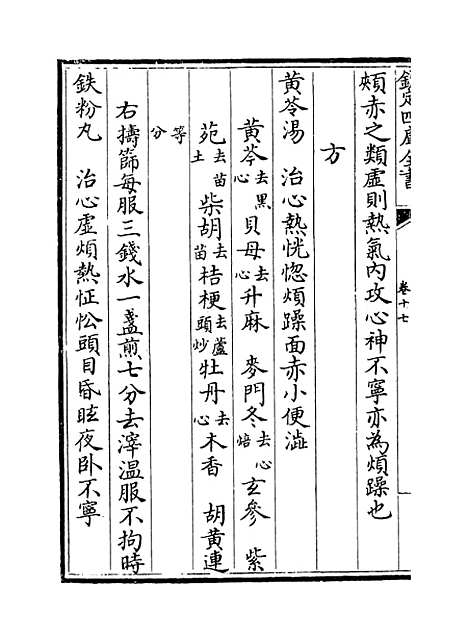 欽定四庫全書
卷十七
頰赤之類虛則熱氣內攻心神不寧亦為煩躁也
方
黃芩湯 治心熱恍惚煩躁面赤小便澁
黃芩去黑心 貝母去心 升麻 麥門冬去心焙 玄參 紫
苑去苗土 柴胡去苗 桔梗去蘆頭炒 牡丹去心 木香 胡黃連
等分
右擣篩每服三錢水一盞煎七分去滓溫服不拘時
鉄粉丸 治心虛煩熱怔忪頭目昏眩夜卧不寧